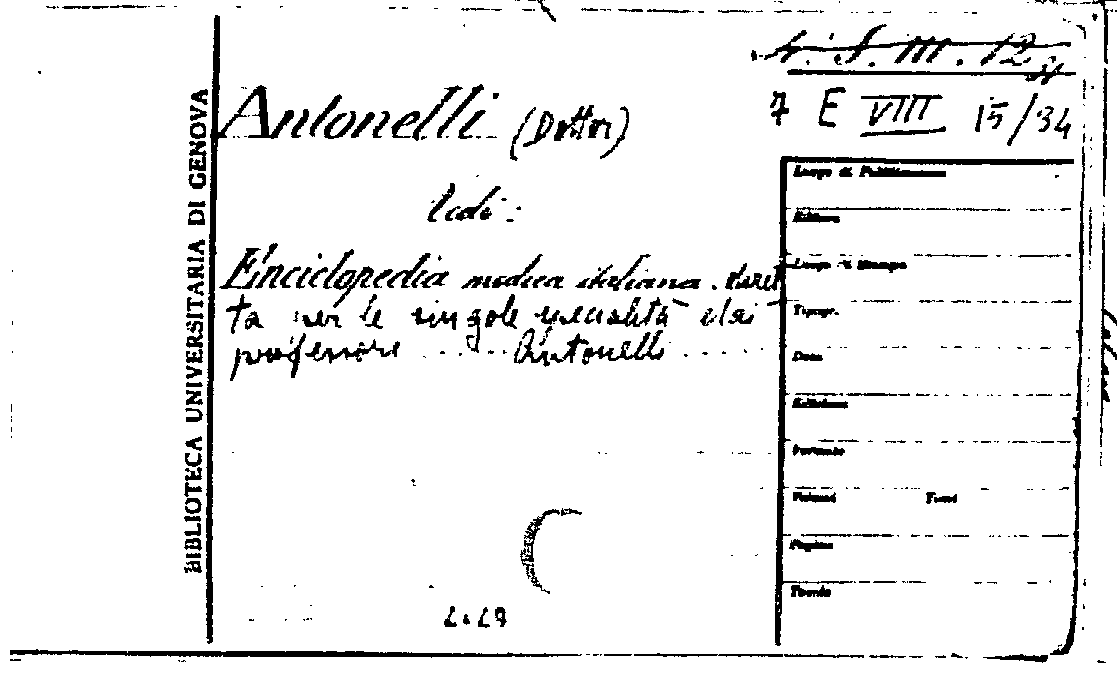 N. S. III. 12
7 E VIIII 15/34
Antonelli (Dottor)
Vedi:
Enciclopedia medica italiana. diret
ta per le singole specialità dai
professori ..... Antonelli .....
BIBLIOTECA UNIVERSITARIA DI GENOVA
Luogo di Pubblicazione
Editore
Luogo di Stampa
Tipogr.
Data
Edizione
Formato
Volumi Tomi
Pagine
Tavole